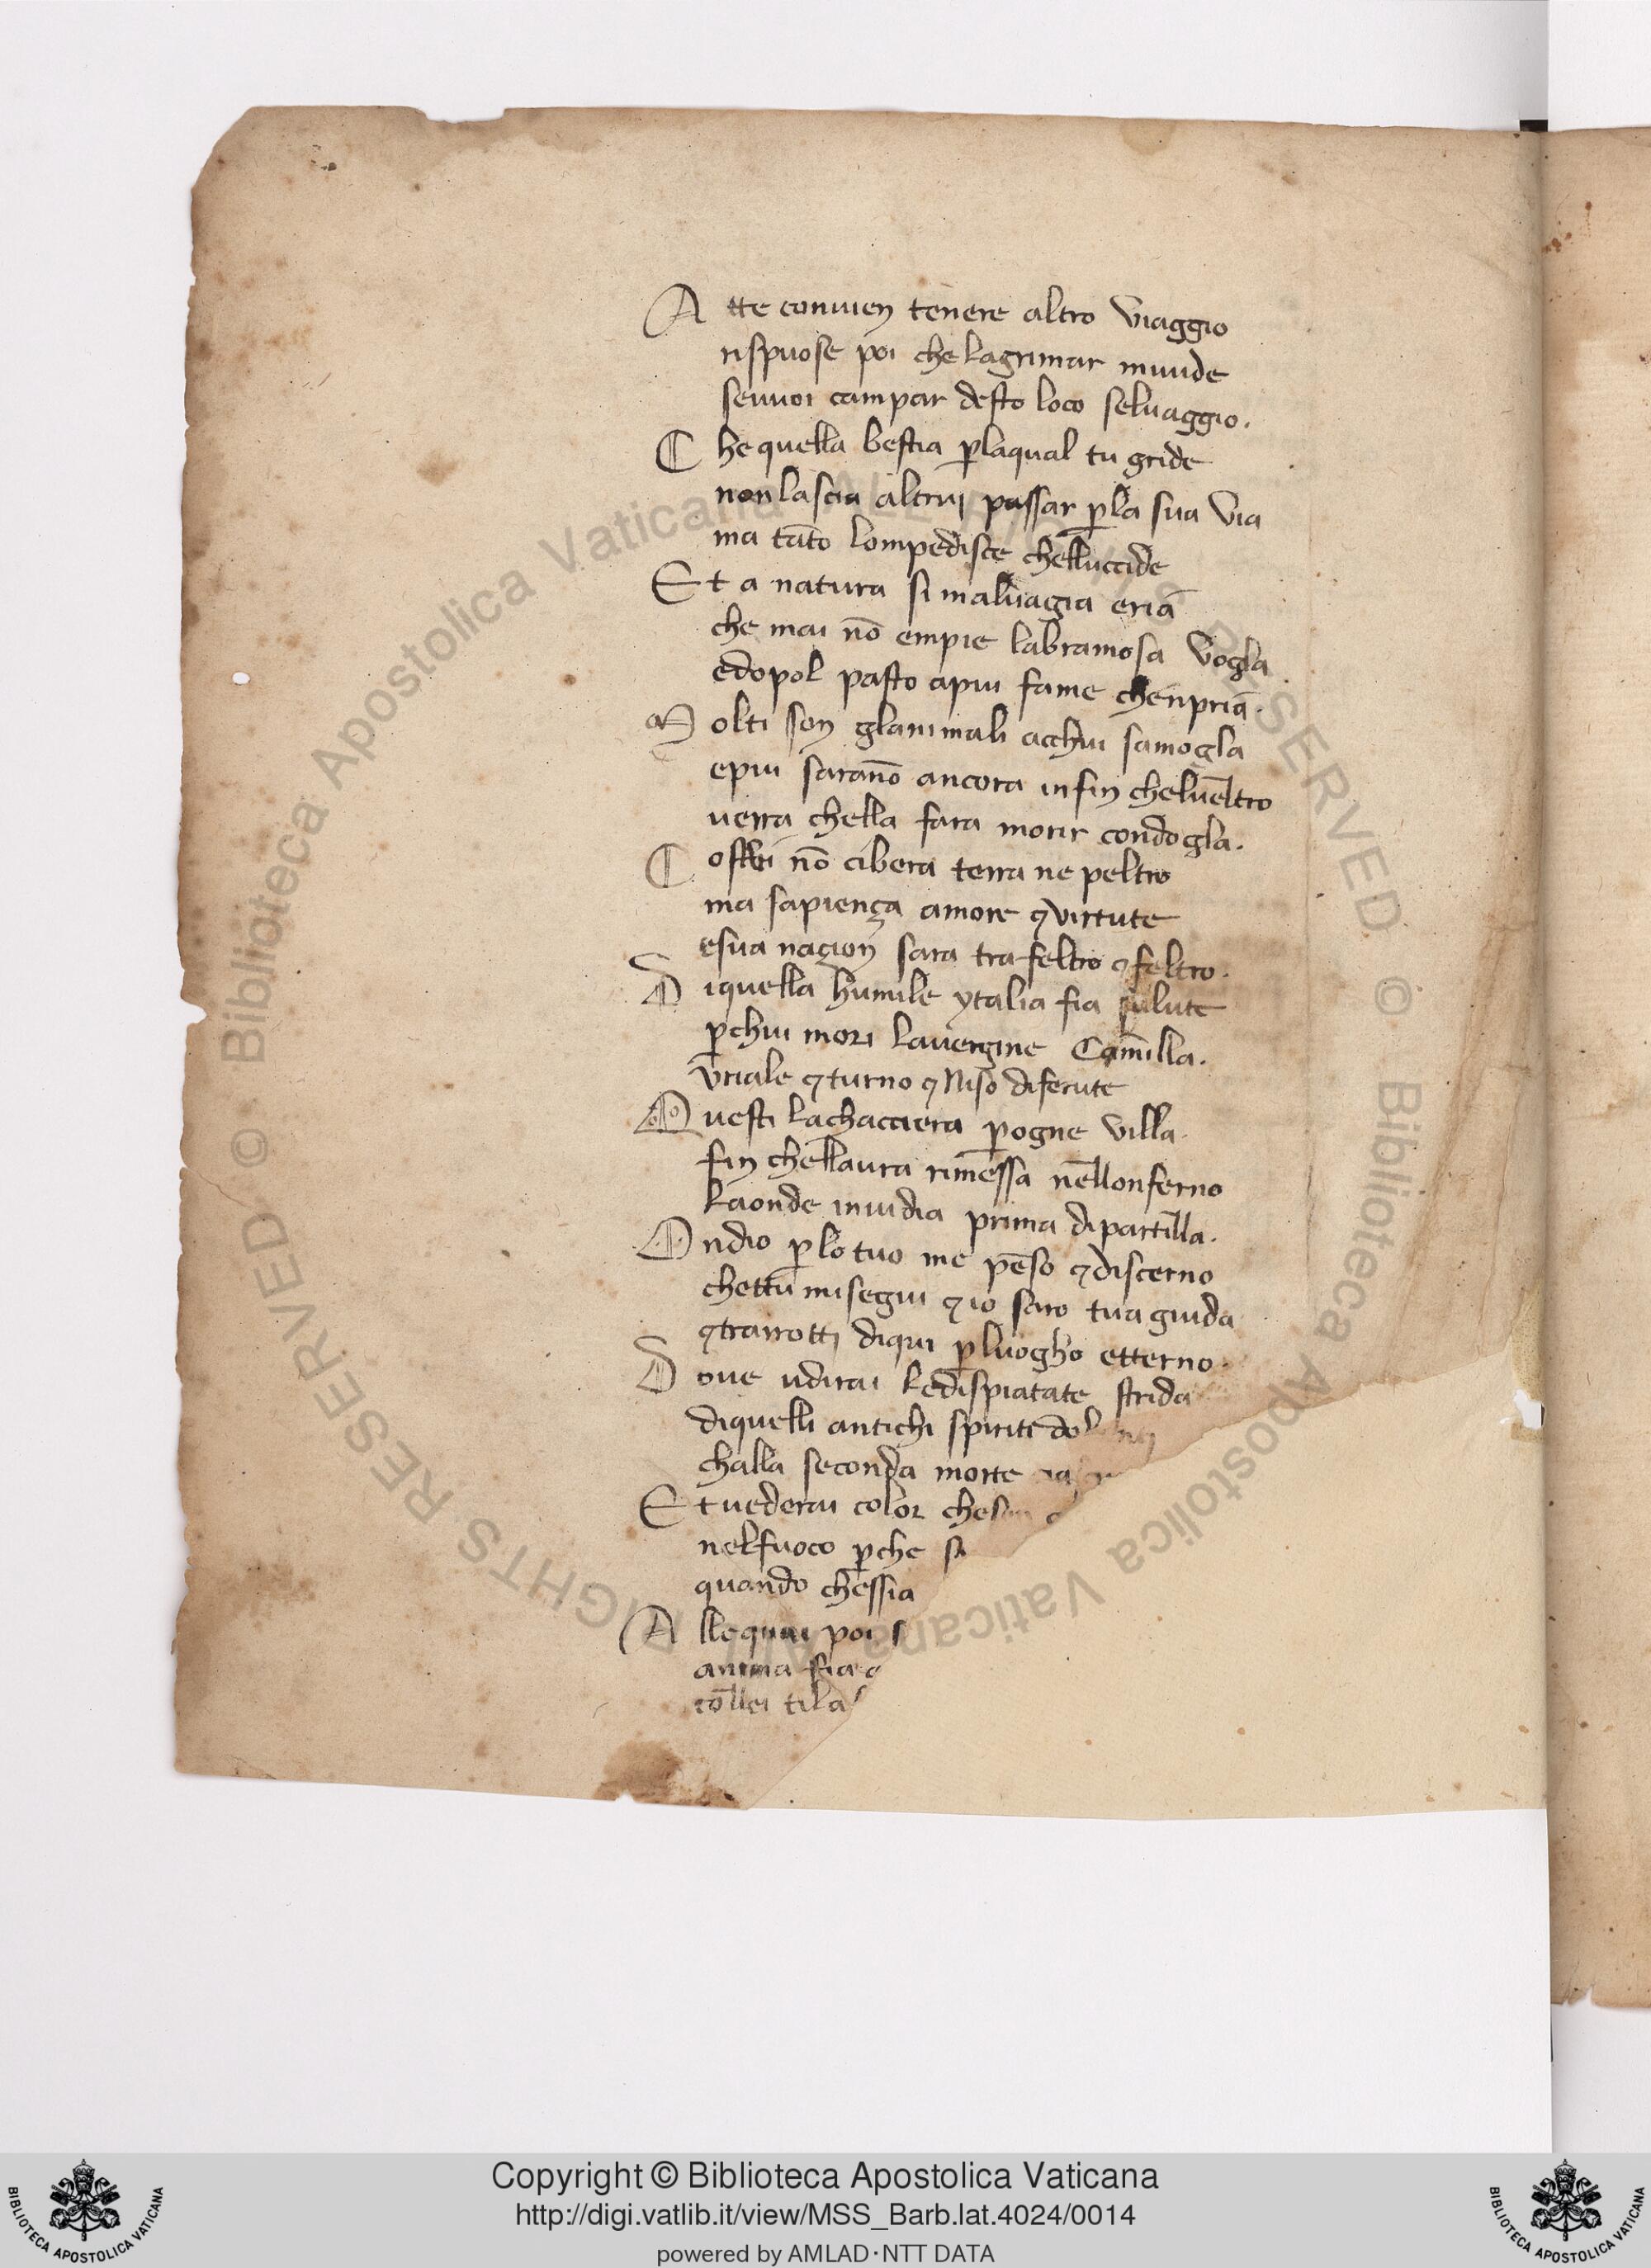 A tte conuien tenere altro viaggio
rispuose poi che lagrimar miuide
seuuoi campar desto loco seluaggio.
C he quella bestia ꝑlaqual tu gride
non lascia altrui passar ꝑla sua via
ma tāto lompedisce chelluccide
E t a natura si maluagia eriā
che mai nō empie labramosa vogla
edopol pasto apiu fame chenpriā.
M olti son glanimali acchui samogla
epiu sarāno ancora infin cheluēltro
uerra chella fara morir condogla.
C ostui nō cibera terra ne peltro
ma sapiença amore ⁊ virtute
esua naçion sara tra feltro ⁊ feltro.
D iquella humile ytalia fia salute
ꝑchui mori lauergine Camilla.
vriale ⁊ turno ⁊ Niso diferute
Q uesti lachacciera ꝑogne villa.
fin chellaura rimessa nellonferno
laonde inuidia prima dipartilla.
O ndio ꝑ lo tuo me pēso ⁊ discerno
chettu misegui ⁊ io saro tua guida
⁊ trarrotti diqui ꝑ luogho etterno.
D oue udirai ledispiatate strida
diquelli antichi spiriti
challa seconda morte
E t uederai color che
nelfuoco ꝑche si
quando chessia
A llequai poi s
anima fia
cōllei ti la
Biblioteca Apostolica Vaticana ALL RIGHTS RESERVED ©
Biblioteca Apostolica Vaticana ALL RIGHTS RESERVED ©
Copyright © Biblioteca Apostolica Vaticana
http://digi.vatlib.it/view/MSS_Barb.lat.4024/0014
powered by AMLAD·NTT DATA
BIBLIOTECA APOSTOLICA VATICANA
BIBLIOTECA APOSTOLICA VATICANA